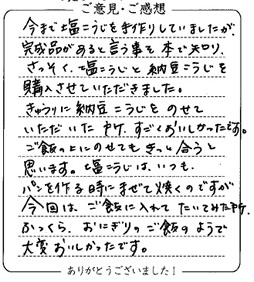 ご意見・ご感想
今まで塩こうじを手作りしていましたが、
完成品があると言う事を本で知り、
さっそく、塩こうじと納豆こうじを
購入させていただきました。
きゅうりに納豆こうじをのせて
いただいた所、すごくおいしかったです。
ご飯の上にのせてもきっと合うと
思います。塩こうじは、いつも、
パンを作る時にまぜて焼くのですが
今回は、ご飯に入れてたいてみた所、
ふっくら、おにぎりのご飯のようで
大変おいしかったです。
ありがとうございました！